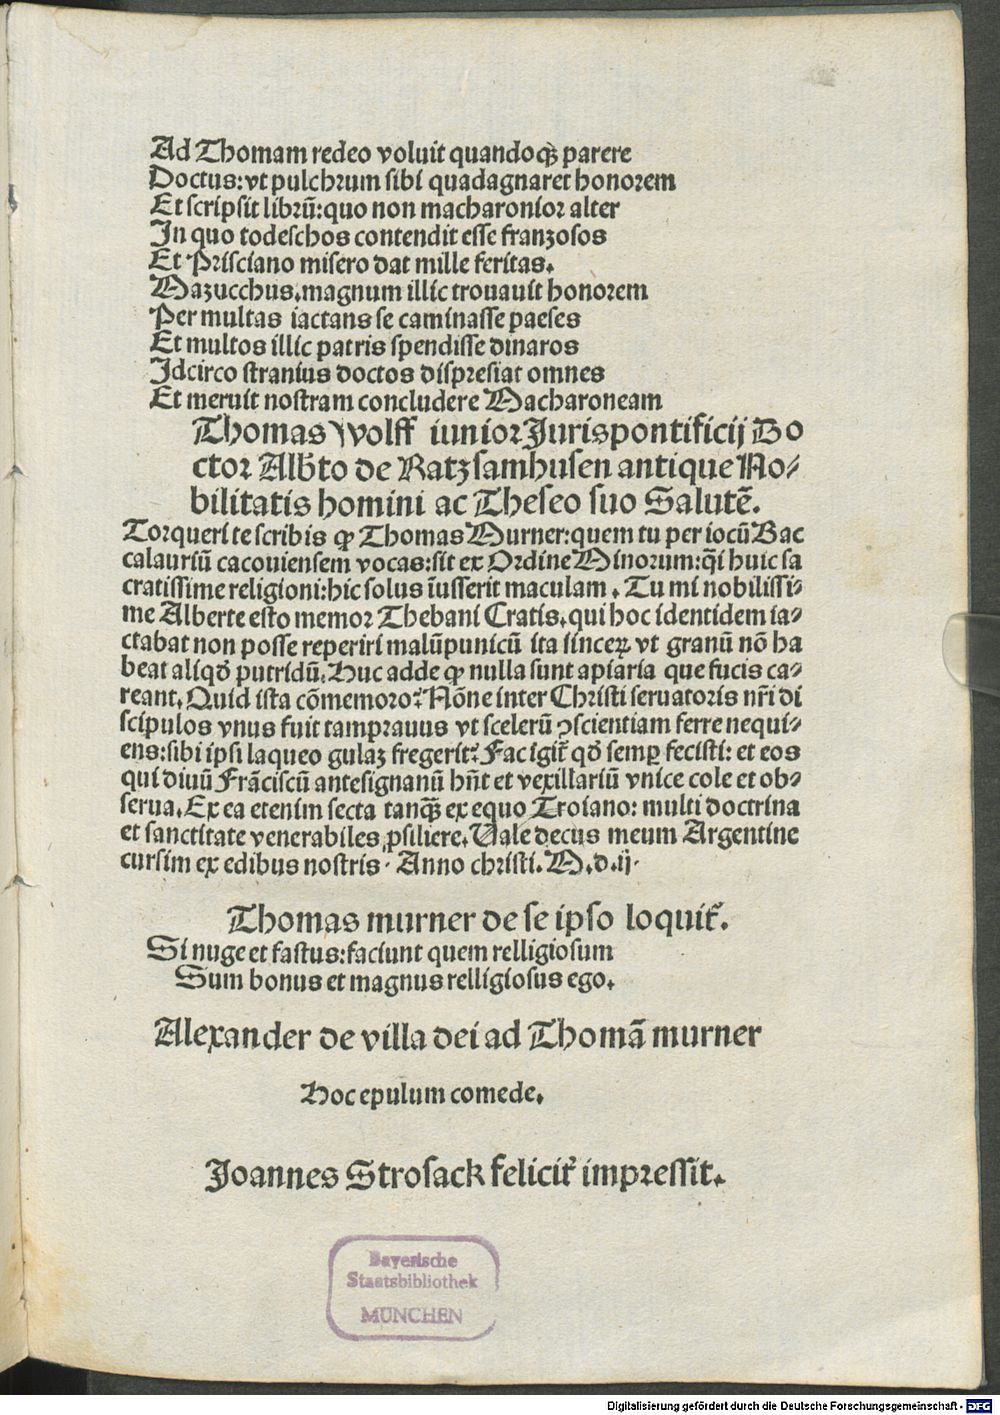 Ad Thomam redeo voluit quandoqꝫ parere
Doctus: vt pulchrum sibi quadagnaret honorem
Et scripsit librū: quo non macharonior alter
In quo todeschos contendit esse franzosos
Et Prisciano misero dat mille feritas.
Mazucchus. magnum illic trouauit honorem
Per multas iactans se caminasse paeses
Et multos illic patris spendisse dinaros
Idcirco stranius doctos dispresiat omnes
Et meruit nostram concludere Macharoneam
Thomas wolff iunior Jurispontificij Do
ctor Alb̄to de Ratzsamhusen antique No⸗
bilitatis homini ac Theseo suo Salutē.
Torqueri te scribis ꝙ Thomas Murner: quem tu per iocū Bac
calauriū cacouiensem vocas: sit ex Ordine Minorum: q̄i huic sa
cratissime religioni: hic solus īusserit maculam. Tu mi nobilissi⸗
me Alberte esto memor Thebani Cratis. qui hoc identidem ia⸗
ctabat non posse reperiri malūpunicū ita sinceꝝ vt granū nō ha
beat aliqđ putridū. Huc adde ꝙ nulla sunt apiaria que fucis ca⸗
reant. Quid ista cōmemoro? Nōne inter Christi seruatoris nr̄i di
scipulos vnus fuit tamprauus vt scelerū ꝯscientiam ferre nequi⸗
ens: sibi ipsi laqueo gulaꝫ fregerit? Fac igit̄ qđ semꝑ fecisti: et eos
qui diuū Frāciscū antesignanū hn̄t et vexillariū vnice cole et ob⸗
serua. Ex ea etenim secta tanqꝫ ex equo Troiano: multi doctrina
et sanctitate venerabiles ꝓsiliere. Vale decus meum Argentine
cursim ex edibus nostris. Anno christi. M.d.ij.
Thomas murner de se ipso loquit̄.
Si nuge et fastus: faciunt quem relligiosum
Sum bonus et magnus relligiosus ego.
Alexander de villa dei ad Thomā murner
Hoc epulum comede.
Joannes Strosack felicit̄ impressit.
Bayerische
Staatsbibliothek
MÜNCHEN
Digitalisierung gefördert durch die Deutsche Forschungsgemeinschaft - DFG